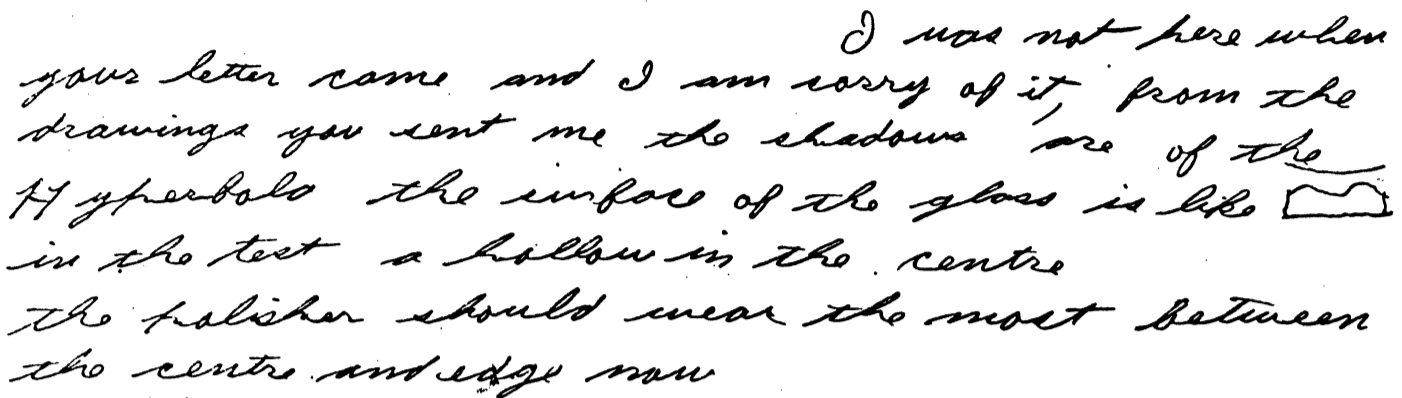 I was not here when
your letter came and I am sorry of it, from the
drawings you sent me the shadows are of the
Hyperbola the surface of the glass is like
in the test a hollow in the centre
the polisher should wear the most between
the centre and edge now